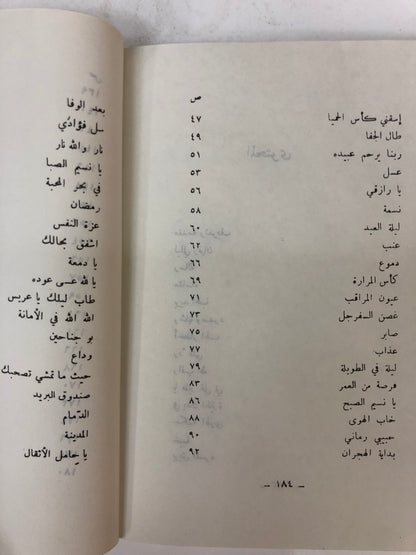 ص
إسقني كأس الحميا ٤٧
طال الجفا ٤٩
ربنا يرحم عبيده ٥١
عسل ٥٣
يا رازقي ٥٦
نسمة ٥٨
ليلة العيد ٦٠
عنب ٦٢
دموع ٦٦
كأس المرارة ٦٩
عيون المراقب ٧١
غصن السفرجل ٧٣
صابر ٧٥
عذاب ٧٧
ليلة في الطويلة ٧٩
فرصة من العمر ٨٣
يا نسيم الصبح ٨٦
خاب الهوى ٨٨
حبيبي رماني ٩٠
بداية الهجران ٩٢
– ١٨٤ –
بعد الوفا
سل فؤادي
نار والله نار
يا نسيم الصبا
في بحر المحبة
رمضان
عزة النفس
اشفق بحالك
يا دمعة
يا لله عسى عوده
طاب ليلك يا عريس
الله الله في الأمانة
بو جناحين
وداع
حيث ما تمشي تصحبك
صندوق البريد
الدمام
المدينة
يا حامل الأثقال